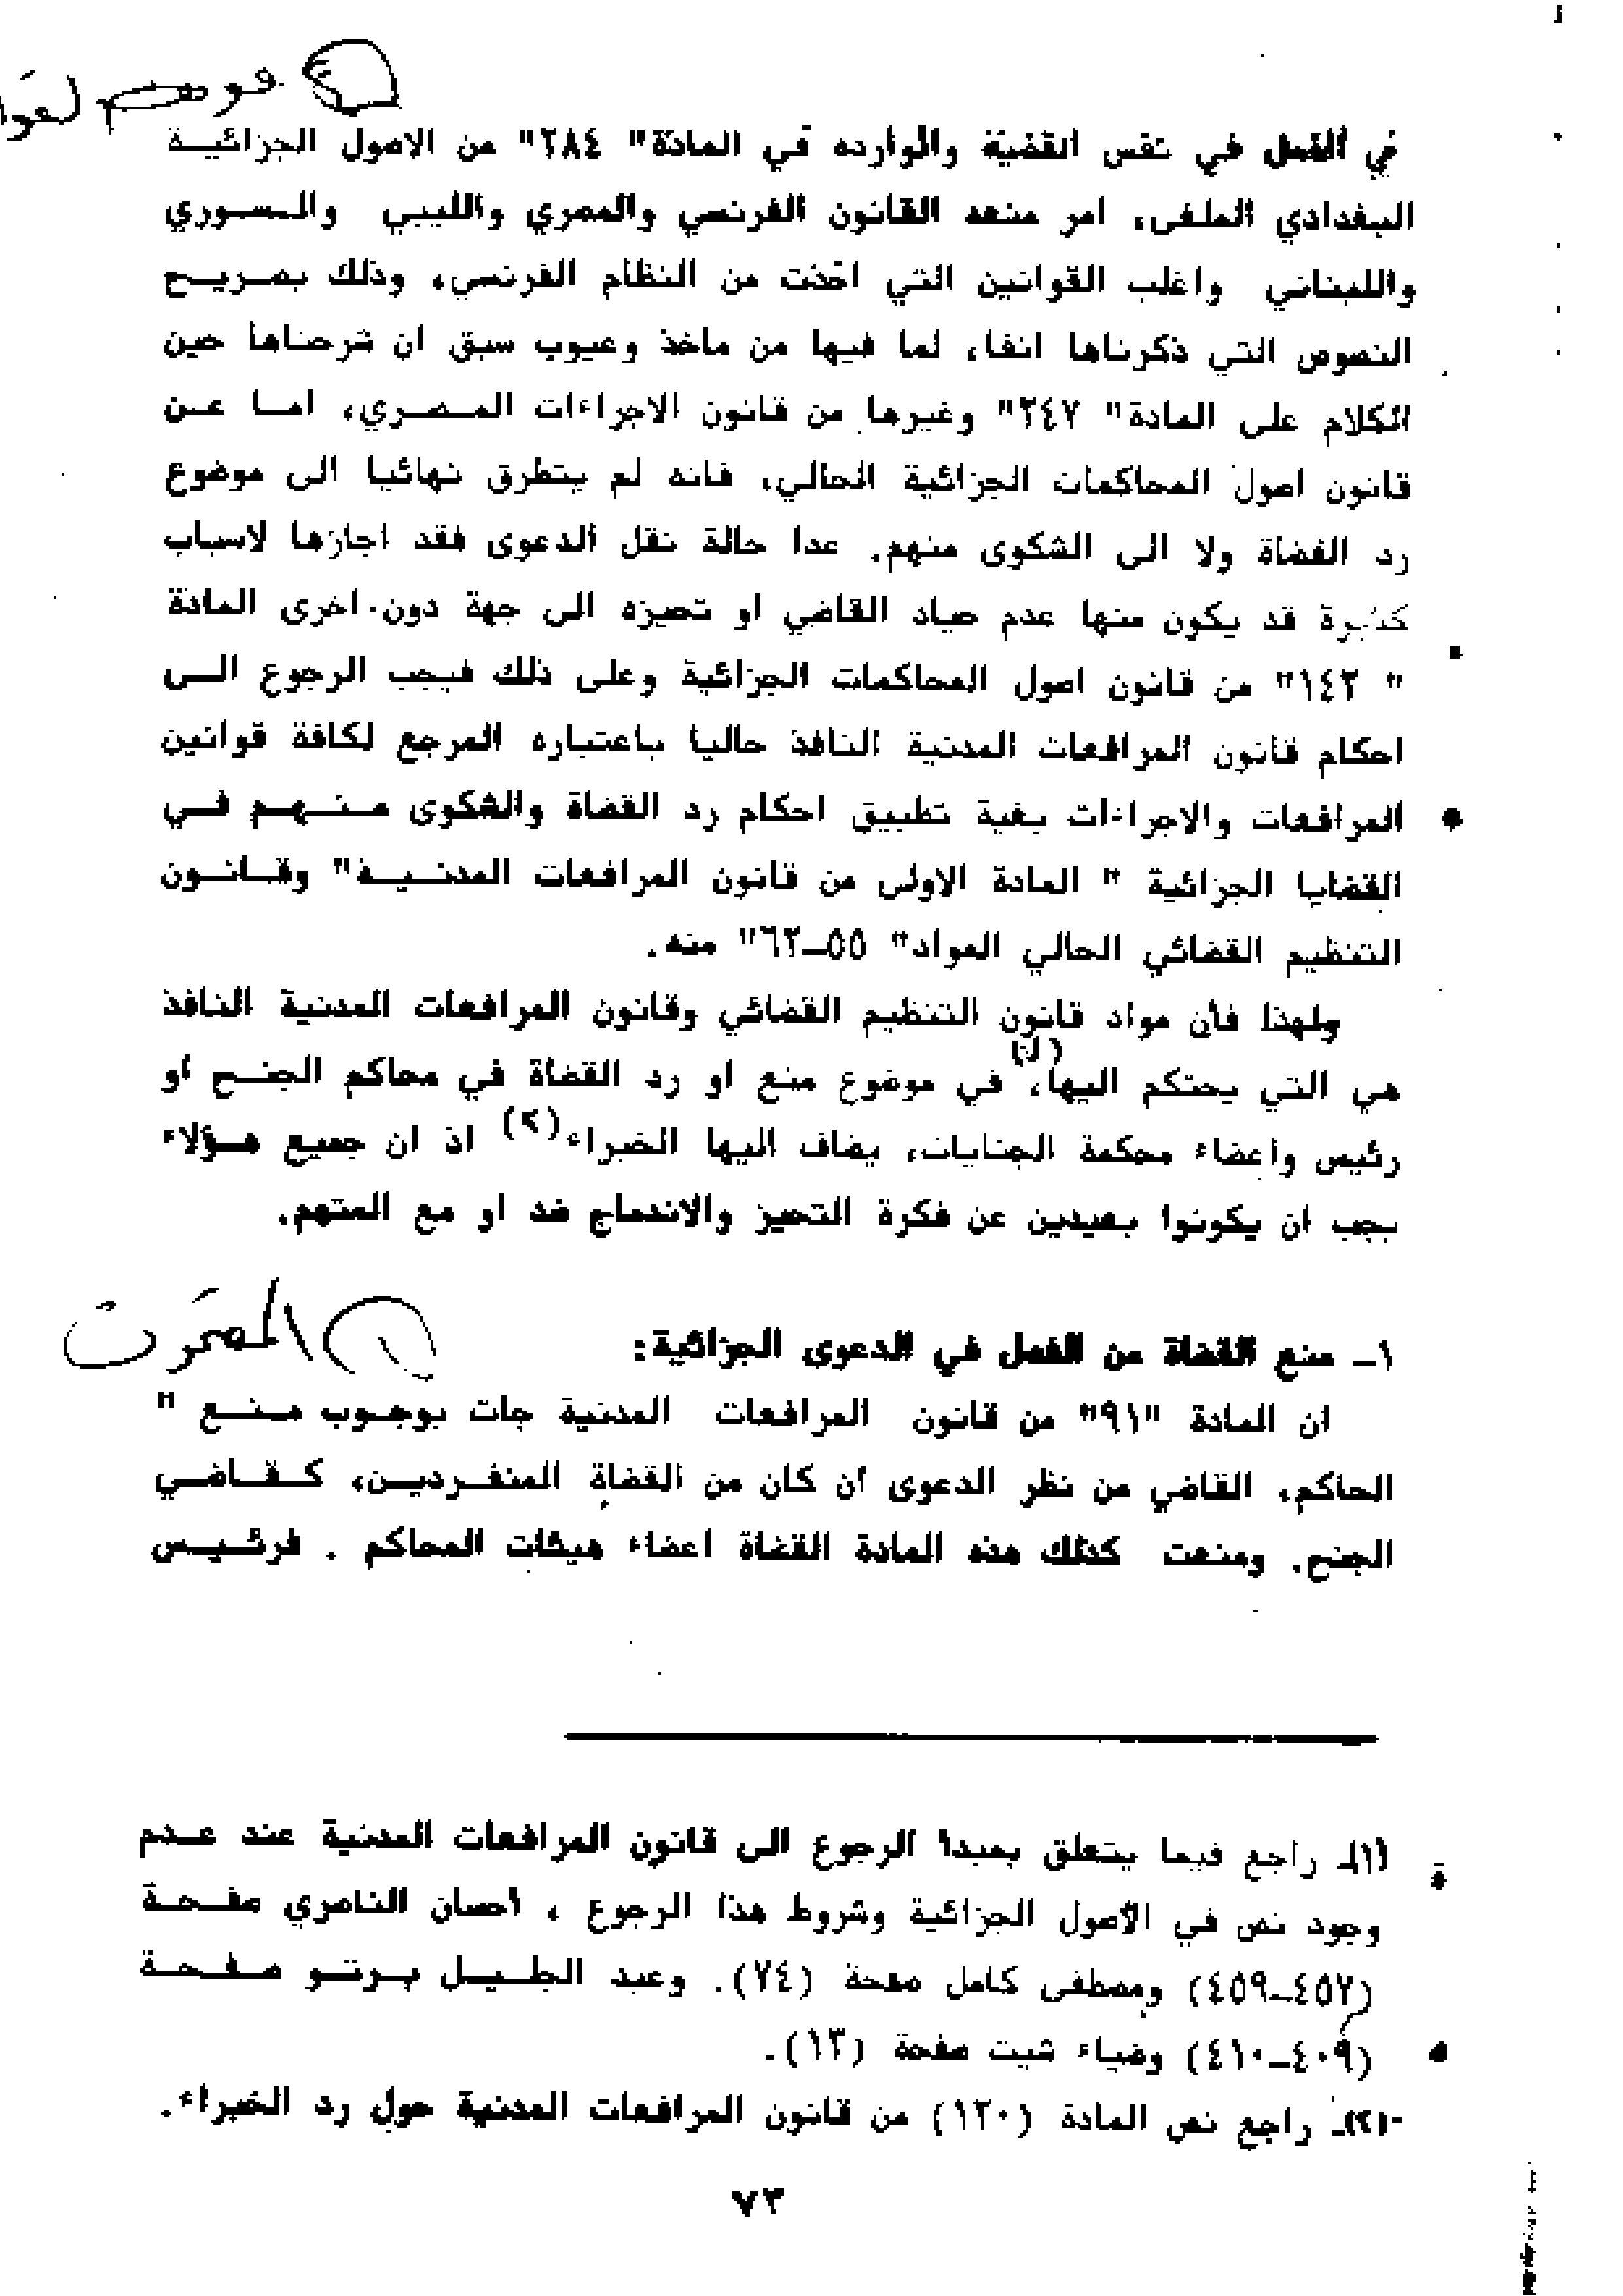 في الفصل في نفس القضية والوارده في المادة" ٢٨٤" من الاصول الجزائيــة
البغدادي الملغى، امر منعه القانون الفرنسي والمصري والليبي والـسـوري
واللبناني واغلب القوانين التي اخذت من النظام الفرنسي، وذلك بصـريـح
النصوص التي ذكرناها انفا، لما فيها من ماخذ وعيوب سبق ان شرحناها حين
الكلام على المادة" ٢٤٧" وغيرها من قانون الاجراءات المـصـري، امـا عـن
قانون اصول المحاكمات الجزائية الحالي، فانه لم يتطرق نهائيا الى موضوع
رد القضاة ولا الى الشكوى منهم. عدا حالة نقل الدعوى فقد اجازها لاسباب
كثيرة قد يكون منها عدم حياد القاضي او تحيزه الى جهة دون اخرى المادة
" ١٤٢" من قانون اصول المحاكمات الجزائية وعلى ذلك فيجب الرجوع الـى
احكام قانون المرافعات المدنية النافذ حاليا باعتباره المرجع لكافة قوانين
المرافعات والاجراءات بغية تطبيق احكام رد القضاة والشكوى مـنـهـم فـي
القضايا الجزائية " المادة الاولى من قانون المرافعات المدنـيـة" وقـانـون
التنظيم القضائي الحالي المواد" ٥٥–٦٢" منه.
ولهذا فأن مواد قانون التنظيم القضائي وقانون المرافعات المدنية النافذ
هي التي يحتكم اليها، في موضوع منع او رد القضاة في محاكم الجنـح او
رئيس واعضاء محكمة الجنايات، يضاف اليها الخبراء(٢) اذ ان جميع هـؤلاء
يجب ان يكونوا بعيدين عن فكرة التحيز والاندماج ضد او مع المتهم.
١– منع القضاة من الفصل في الدعوى الجزائية:
ان المادة "٩١" من قانون المرافعات المدنية جات بوجـوب مـنـع "
الحاكم، القاضي من نظر الدعوى ان كان من القضاة المنفـرديـن، كـقـاضـي
الجنح. ومنعت كذلك هذه المادة القضاة اعضاء هيئات المحاكم . فرئـيـس
(١)ـ راجع فيما يتعلق بمبدا الرجوع الى قانون المرافعات المدنية عند عـدم
وجود نص في الأصول الجزائية وشروط هذا الرجوع ، احسان الناصري صفـحـة
(٤٥٧–٤٥٩) ومصطفى كامل صفحة (٧٤). وعبد الجلـيـل بـرتـو صـفـحـة
(٤٠٩–٤١٠) وضياء شيت صفحة (١٣).
(٢)ـ راجع نص المادة (١٢٠) من قانون المرافعات المدنية حول رد الخبراء.
٧٣